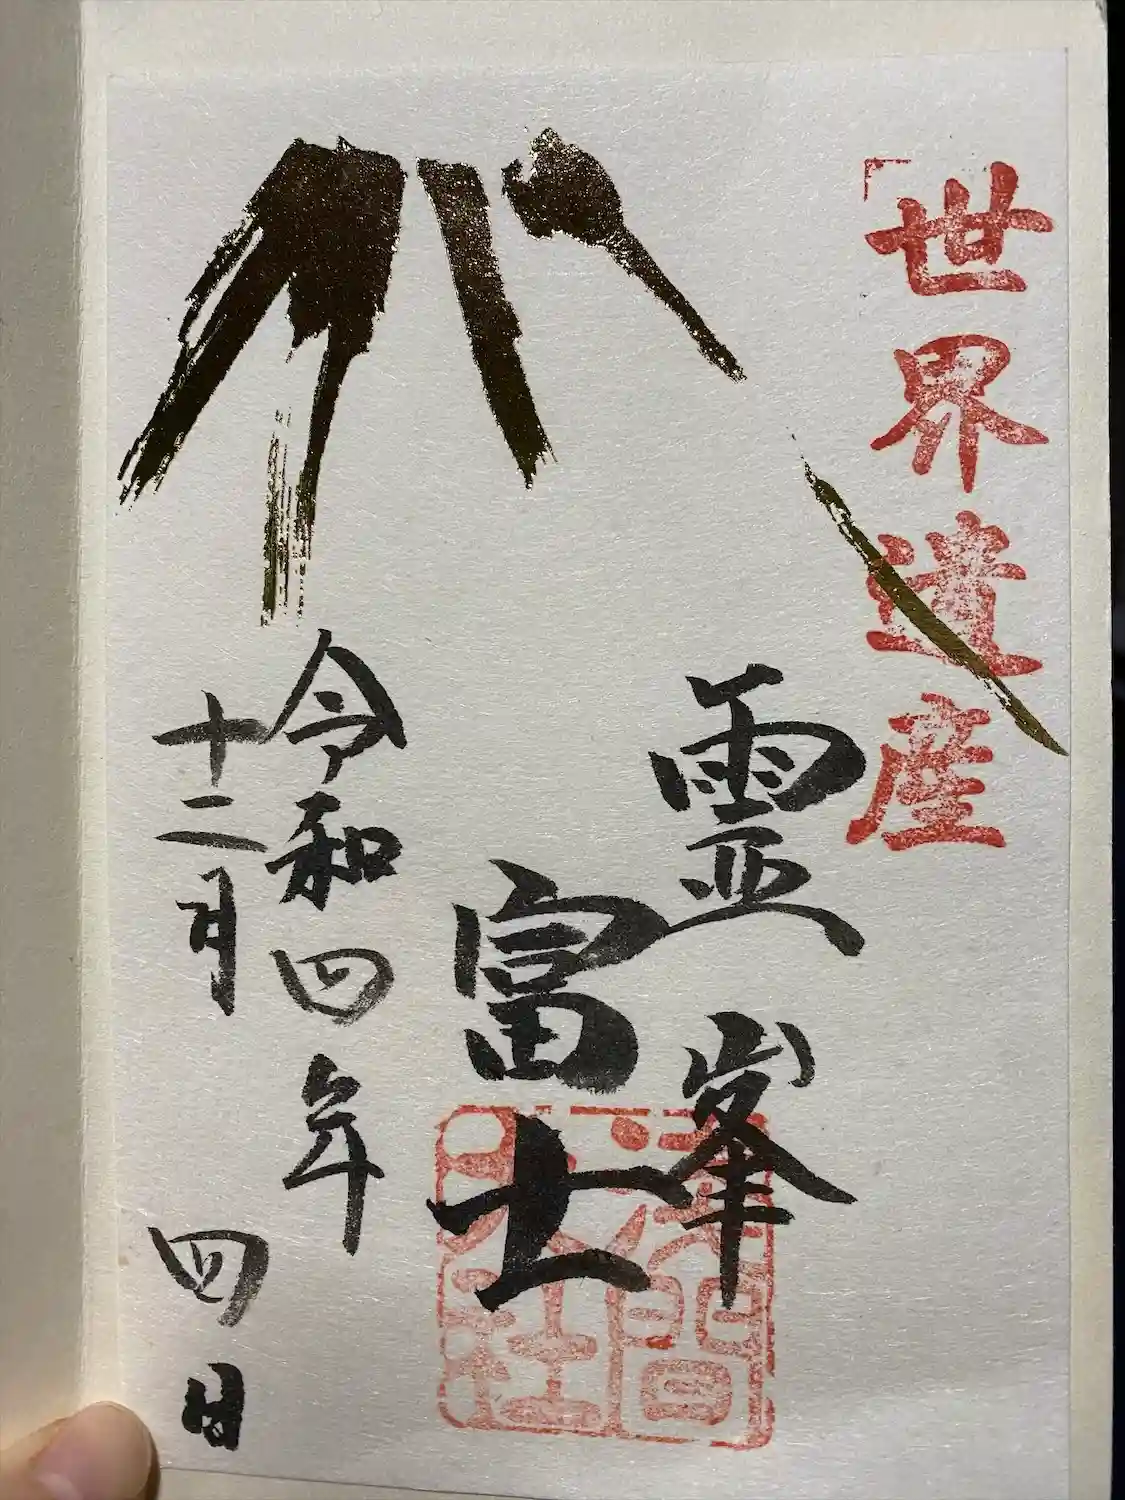 世界遺産
霊峯
富士
浅間
大社
令和四年
十二月四日